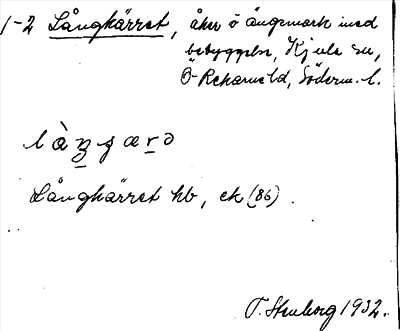 1-2 Långkärret, åker o ängsmark med
bebyggelse, Kjula sn,
Ö-Rekarne hd, Söderm. l.
Långkärret hb, ek (86).
T. Stenborg 1932.